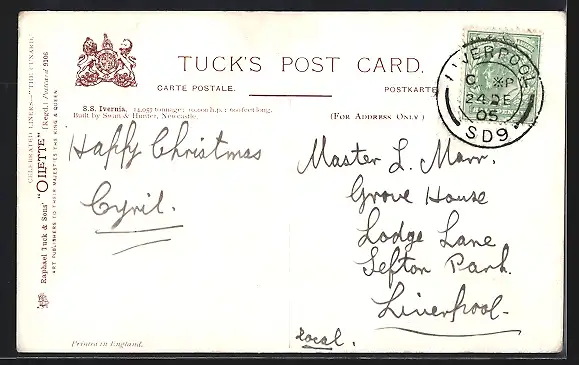 TUCK'S POST CARD.
CARTE POSTALE.
POSTKARTE
S.S. Ivernia. 14,057 tonnage; 10,000 h.p.; 600 feet long.
Built by Swan & Hunter, Newcastle.
(FOR ADDRESS ONLY)
Happy Christmas
Cyril.
Master L. Marr.
Grove House
Lodge Lane
Sefton Park.
Liverpool.
Local.
Printed in England.
CELEBRATED LINERS—"THE CUNARD"
Raphael Tuck & Sons' "OILETTE" [Regd.] Postcard 9106
ART PUBLISHERS TO THEIR MAJESTIES THE KING & QUEEN
LIVERPOOL
24 DE
05
SD9